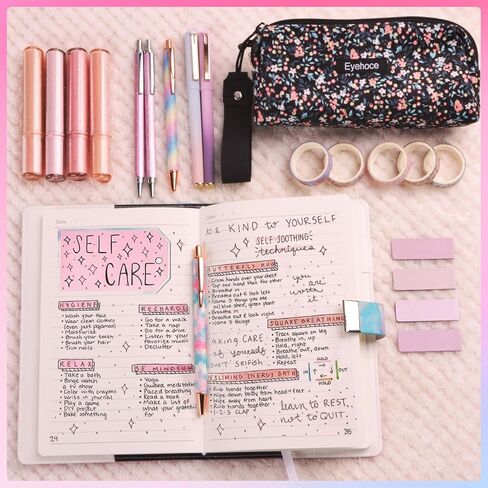 Eyehoce
Date
SELF
CARE
HYGIENE
• Wash your face
• Wear clean clothes
(even just pajamas)
• Moisturize
• Brush your teeth
• Brush your hair
• Trim nails
RECHARGE
• Go for a walk
• Take a nap
• Go for a drive
• Listen to your
favorite music
• Declutter
RELAX
• Take a bath
• Binge watch
a tv show
• Color with crayons
• Write in journal
• Play a game
• DIY project
• Bake something
BE MINDFUL
• Yoga
• Guided meditation
• Paced breathing
• Read a book
• Make a list of
what your grateful
for
24
Date
be KIND to YOURSELF
SELF SOOTHING
techniques
BUTTERFLY HUG
• Cross hands over your chest
• Tap one hand then the other
• Breathe out & look left
• Name 3 things you see
ex) blue sheet, green plant
• Breathe in
• Breathe out & look right
• Name 3 things
you
are
worth
it
SQUARE BREATHING
• Trace square on leg
• Breathe in, up
• Hold, right
• Breathe out, down
• Hold, left
• Repeat
HOLD
IN
OUT
HOLD
TAKING CARE
of yourself
ISN'T SELFISH
ENERGY BATH
• Rub hands together
• Wipe down body from head - feet
• Wipe away from heart
• Rub hands together
• 1-2-3 CLAP
learn to REST,
not to QUIT.